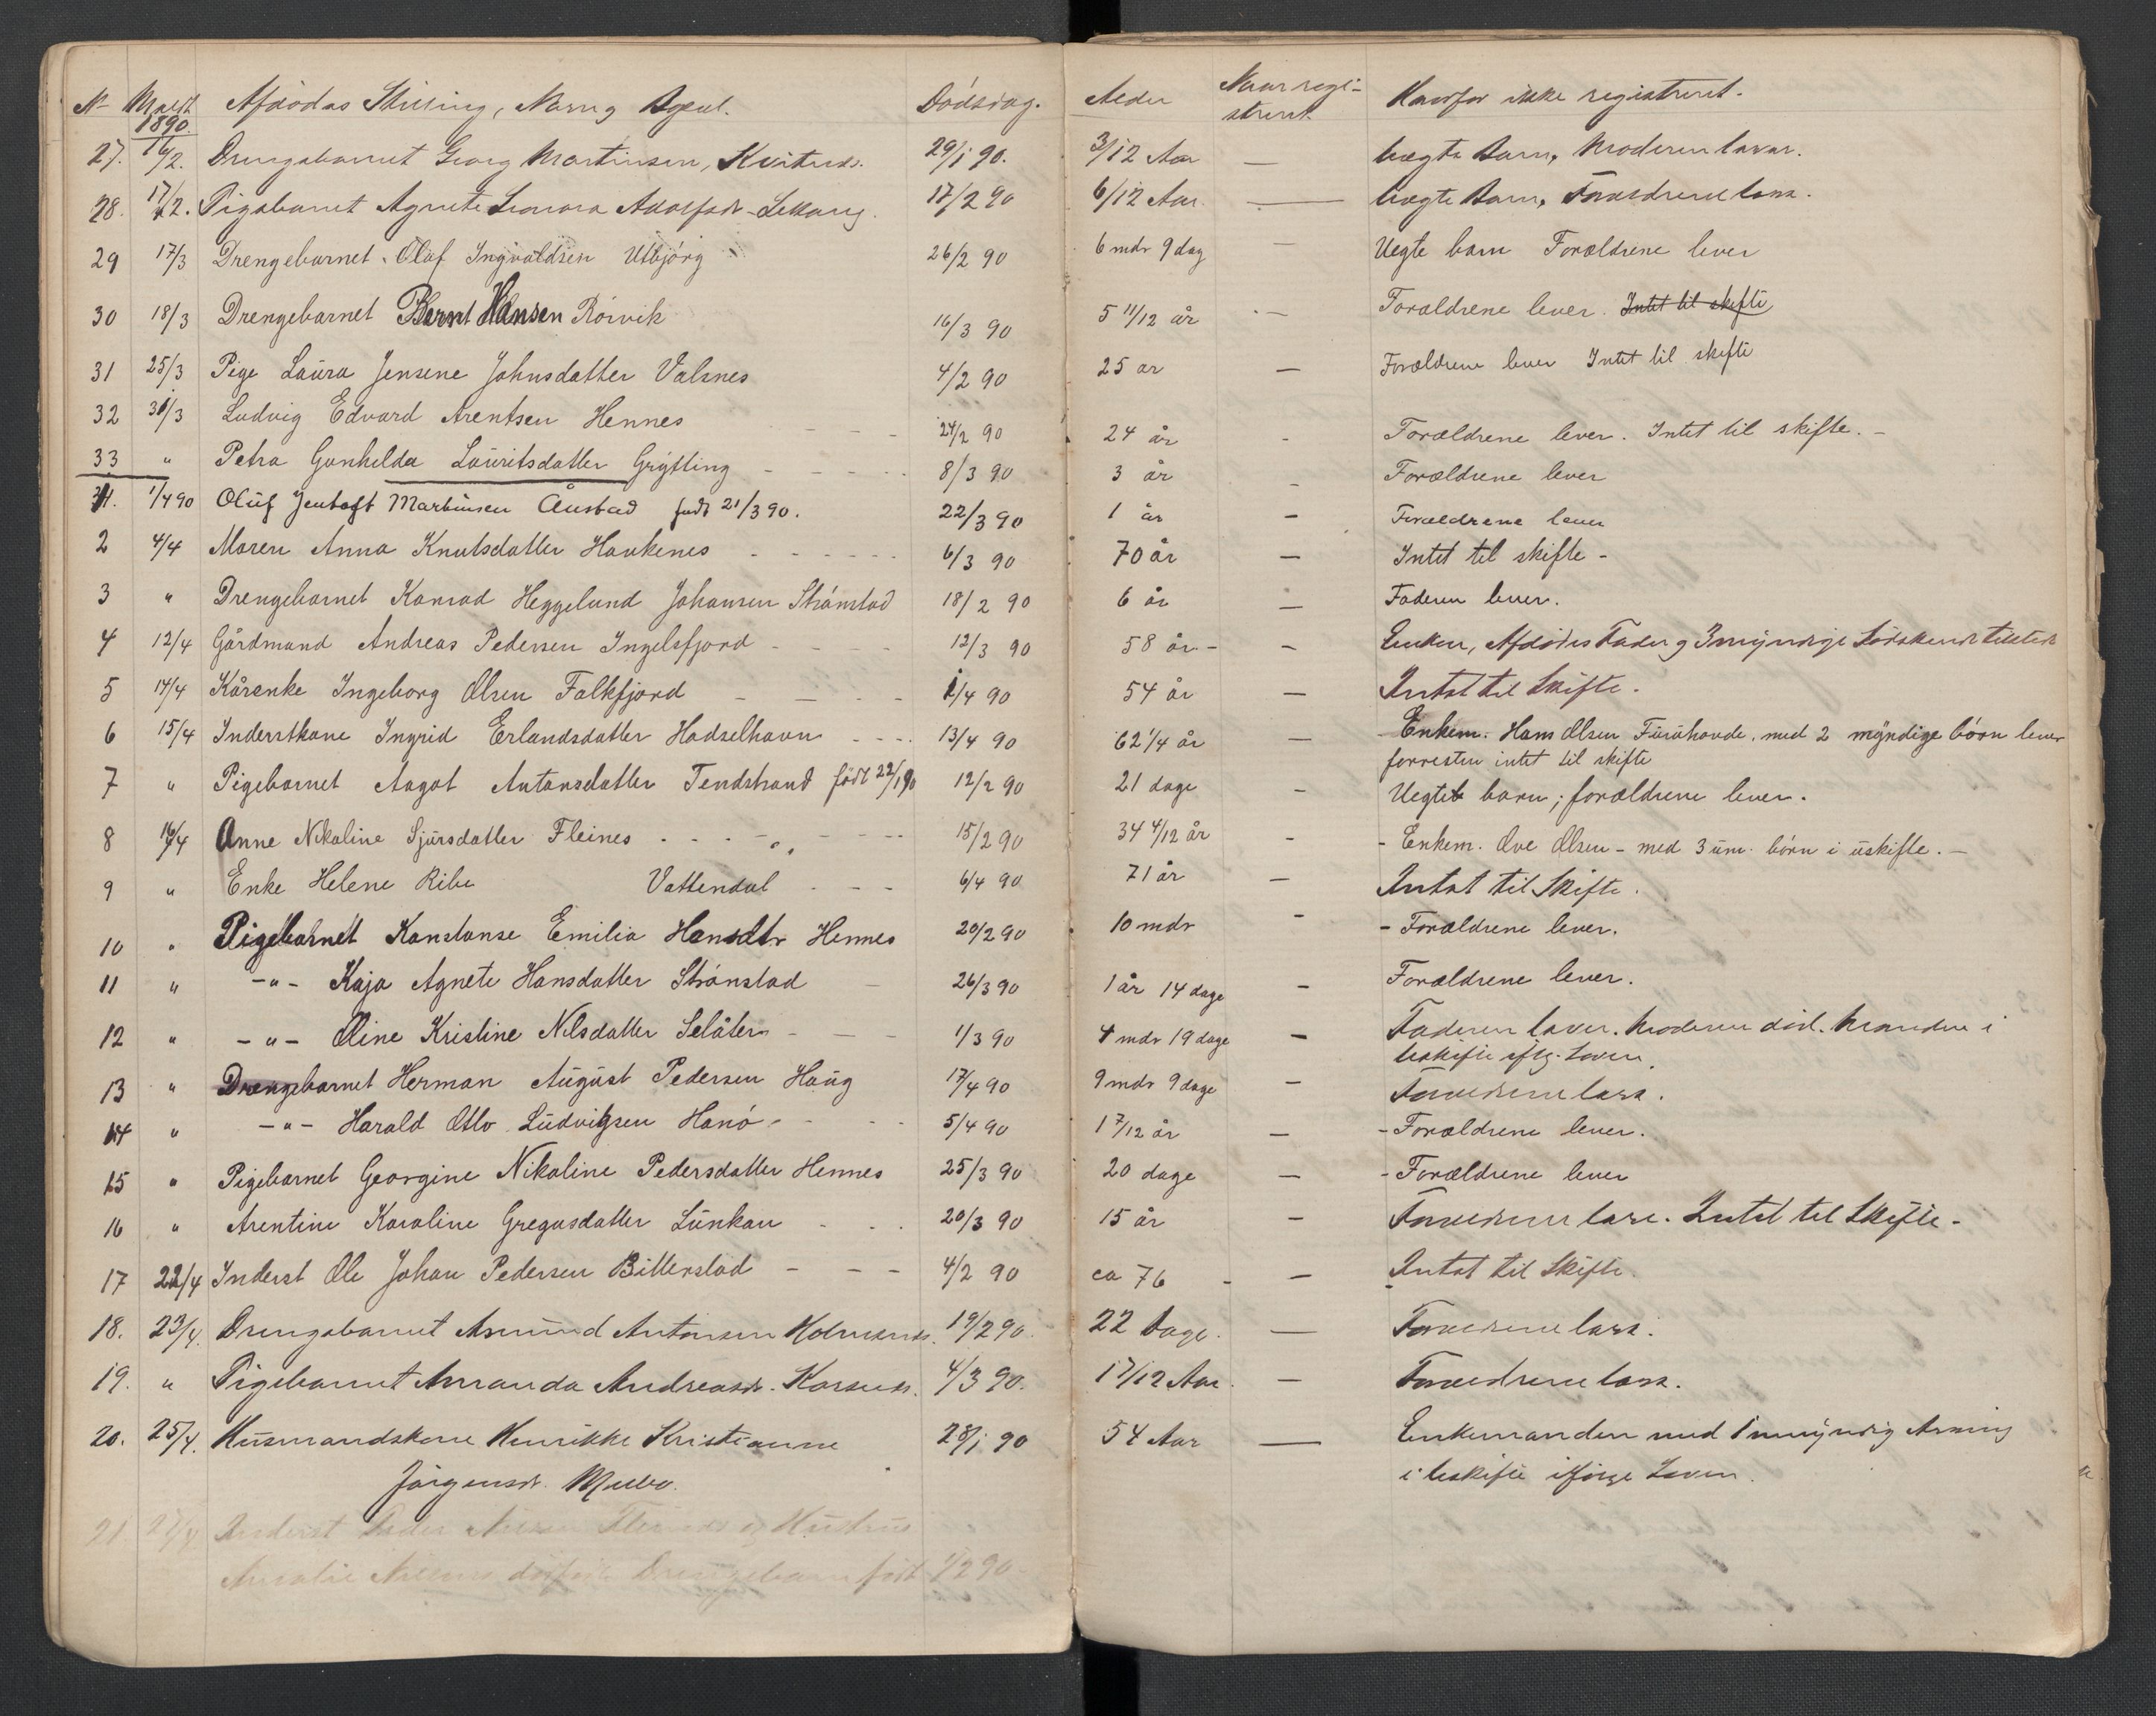 No Meldt Afdødes Stilling, Navn og Bopæl. Dødsdag. Alder Naar registreret. Hvorfor ikke registreret.
1890.
27. 16/2. Drengebarnet Georg Martinsen, Kvitnes. 29/1 90. 3/12 Aar — Uægte Barn, Moderen lever.
28. 17/2. Pigebarnet Agnete Leonora Adolfsdr. Lekang. 17/2 90 6/12 Aar — Uægte Barn, Forældrene leve.
29 17/3 Drengebarnet Olaf Ingvaldsen Utbjörg 26/2 90 6 mdr 9 dag — Uegte barn Forældrene lever
30 18/3 Drengebarnet Bernt Hansen Rörvik 16/3 90 5 11/12 år — Forældrene lever. Intet til skifte
31 25/3 Pige Laura Jensine Johnsdatter Valsnes 4/2 90 25 ar — Forældrene lever Intet til skifte
32 31/3 Ludvig Edvard Arentsen Hennes - - - 24/2 90 24 år - Forældrene lever. Intet til skifte. -
33 " Petra Gunhilda Lauritsdatter Grytting - - - - 8/3 90 3 år - Forældrene lever
1. 1/4 90 Oluf Jentoft Martinsen Åustad født 21/3 90. 22/3 90 1 år - Forældrene lever
2 4/4 Maren Anna Knutsdatter Haukenes - - - - - - 6/3 90 70 år — Intet til skifte -
3 " Drengebarnet Konrad Heggelund Johansen Strönstad 18/2 90 6 år — Faderen lever.
4 12/4 Gårdmand Andreas Pedersen Ingelsfjord - - - - 12/3 90 58 år - - Enken, Afdødes Fader og 3 myndige Södskende
5 14/4 Kårenke Ingeborg Olsen Falkfjord - - - 1/4 90 54 år — Intet til Skifte.
6 15/4 Inderstkone Ingrid Erlandsdatter Hadselhavn - - - - 13/4 90 62 1/4 år — Enkem. Hans Olsen med 2 myndige börn lever
forresten intet til skifte
7 " Pigebarnet Aagot Antonsdatter Tendstrand födt 22/1 90 12/2 90 21 dage - Uegte barn; forældrene lever.
8 16/4 Anne Nikoline Sjursdatter Fleines - - - - - - 15/2 90 34 4/12 år - - Enkem. Ove Olsen - med 3 um. börn i uskifte. -
9 " Enke Helene Ribe Vattendal - - - 6/4 90 71 år — Intet til Skifte.
10 " Pigebarnet Konstanse Emilia Hansdtr Hennes 20/2 90 10 mdr - - Forældrene lever.
11 " -"- Kaja Agnete Hansdatter Strönstad - 26/3 90 1 år 14 dage - Forældrene lever.
12 " -"- Oline Kristine Nilsdatter Selåter - - - 1/3 90 4 mdr 19 dage - Faderen lever. Moderen död. Manden i
Uskifte iflg. Loven.
13 " Drengebarnet Herman August Pedersen Haug 17/4 90 9 mdr 9 dage - Forældrene leve.
14 " -"- Harald Otto Ludvigsen Hanö - - - 5/4 90 1 7/12 år — - Forældrene lever.
15 " Pigebarnet Georgine Nikoline Pedersdatter Hennes 25/3 90 20 dage — - Forældrene lever
16 " Arentine Karoline Gregusdatter Lunkan - - - 20/3 90 15 år - Forældrene leve. Intet til Skifte -
17 22/4 Inderst Ole Johan Pedersen Bitterstad - - - 4/2 90 ca 76 - — Intet til Skifte.
18. 23/4. Drengebarnet Asmund Antonsen Holmsnes. 19/2 90. 22 Dage. — Forældrene leve.
19. " Pigebarnet Amanda Andreasdr. Korsnes. 4/3 90. 1 7/12 Aar. — Forældrene leve.
20. 25/4. Husmandskone Henrikke Kristianne 28/1 90 54 Aar — Enkemanden med 1 umyndig Arving
Jörgensdr. Melbo. i Uskifte ifølge Loven.
21. 27/4 Inderst Peder og Hustru
Amalie Drengebarn född 1/2 90